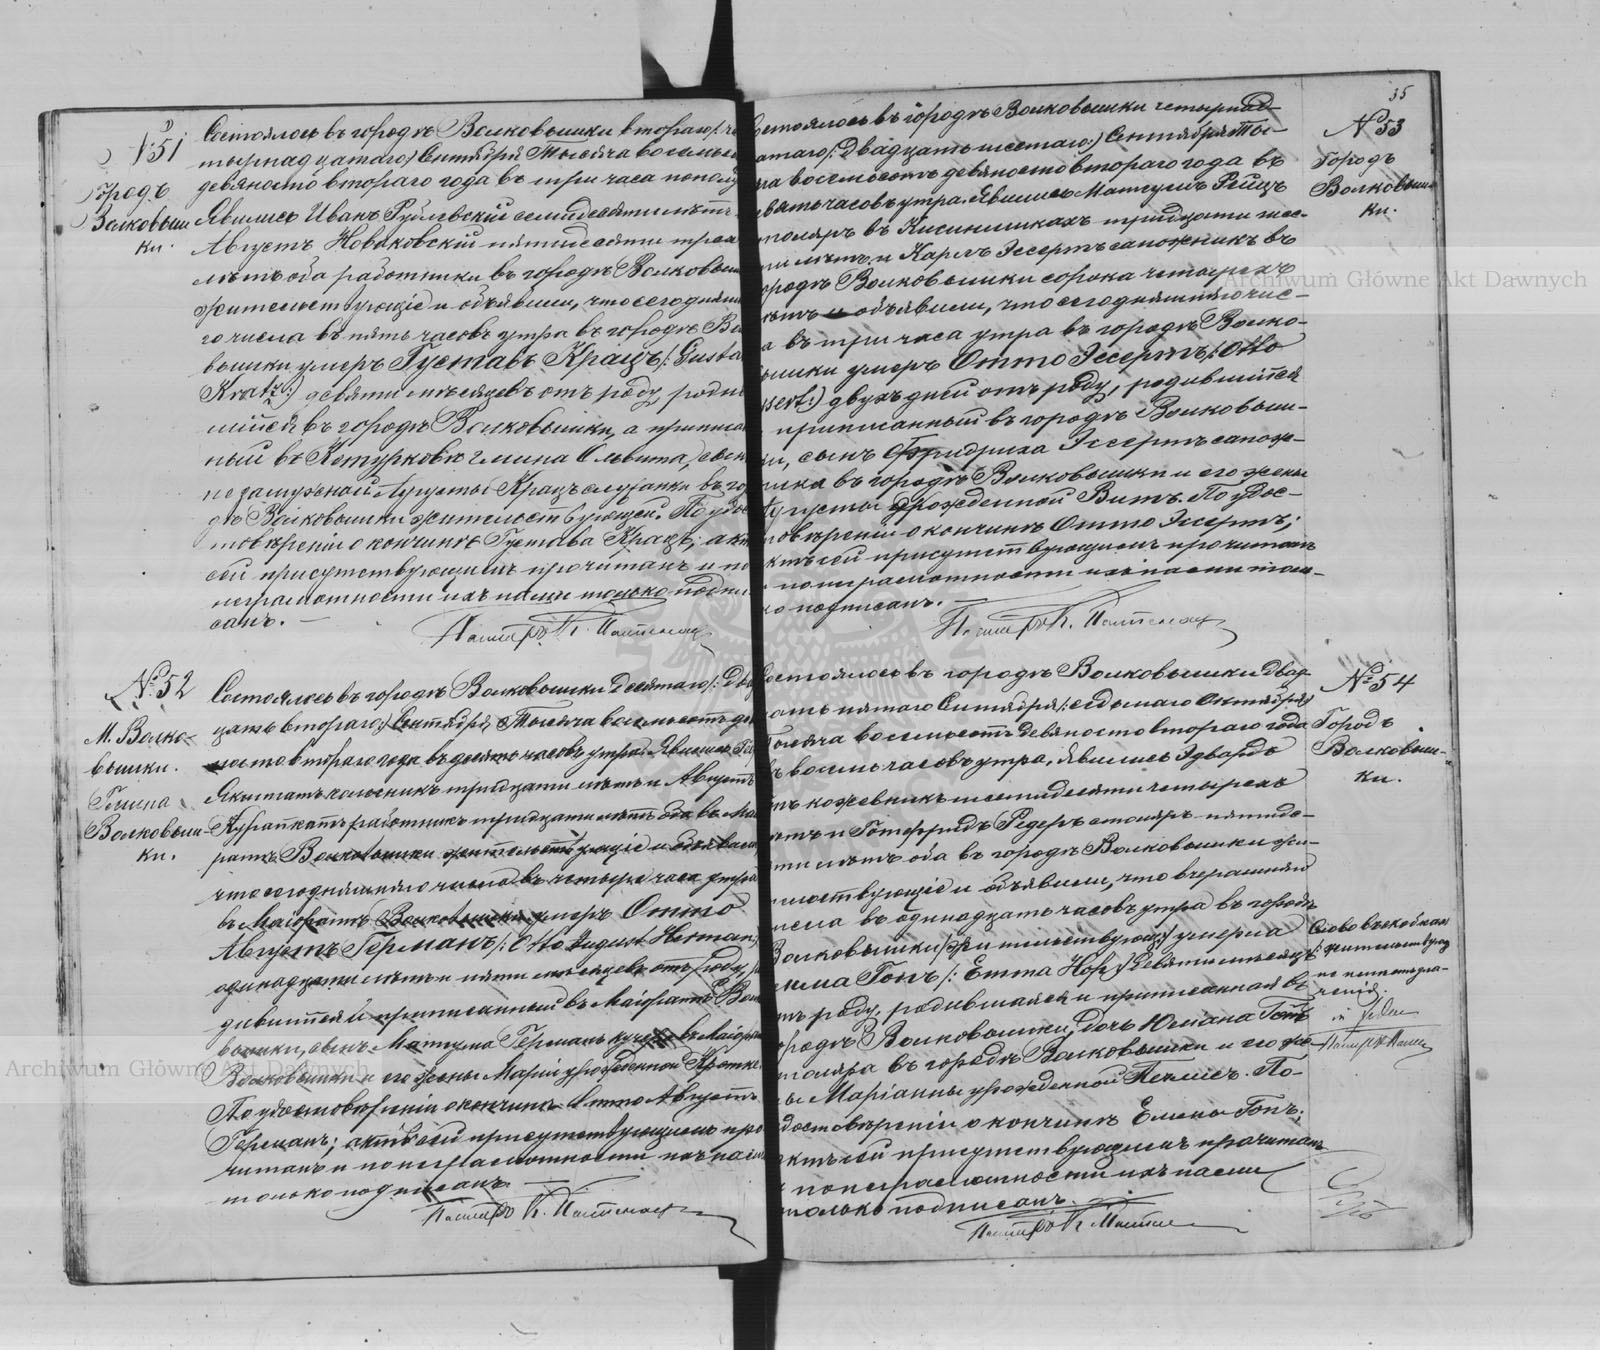 № 51
Городъ
Волковыш
ки.
Состоялось въ городѣ Волковышки втораго /: че
тырнадцатаго :/ Сентября Тысяча восемьсо
девяносто втораго года въ три часа пополу
Явились Иванъ Рублевскій семидесяти лѣтъ
Августъ Новаковскій пятидесяти трехъ
лѣтъ оба работники въ городѣ Волковыш
жительствующіе и объявили, что сегодняшня
го числа въ пять часовъ утра въ городѣ Во
вышки умеръ Густавъ Крацъ /: Gusta
Kratz :/ девяти мѣсяцевъ отъ роду, родив
шійся въ городѣ Волковышки, а приписан
ный въ гмина Ольвита, сынъ
незамужней Августы Крацъ служанки въ го
дѣ Волковышки жительствующей. По удос
товѣреніи о кончинѣ Густава Крацъ; актъ
сей присутствующимъ прочитанъ и по
неграмотности ихъ нами только подпи
санъ. —
Пасторъ
№ 52
М. Волко-
вышки.
Гмина
Волковыш-
ки.
Состоялось въ городѣ Волковышки десятаго /: два
цать втораго :/ Сентября Тысяча восемьсотъ де
вяносто втораго года въ девять часовъ утра. Явились
тридцати лѣтъ и Августъ
работникъ тридцати лѣтъ оба въ Маі
ратѣ Волковышки жительствующіе и объявили,
что сегодняшняго числа въ четыре часа утра
въ Маіоратѣ Волковышки умеръ Отто
Августъ Германъ /: Otto August Herman :/
одинадцати лѣтъ и пяти мѣсяцевъ отъ роду, ро
дившійся и приписанный въ Маіоратѣ Вол
вышки, сынъ Германъ въ Маіоратѣ
Волковышки и его жены Маріи урожденной
По удостовѣреніи о кончинѣ Отто Августъ
Германъ; актъ сей присутствующимъ про
читанъ и по неграмотности ихъ нами
только подписанъ. —
Пасторъ
35
№ 53
Городъ
Волковыш
ки.
Состоялось въ городѣ Волковышки четырнад-
цатаго /: Двадцать шестаго :/ Сентября Ты-
яча восемьсотъ девяносто втораго года въ
девять часовъ утра. Явились
столяръ въ тридцати шес-
ти лѣтъ и Карлъ Эссертъ сапожникъ въ
ородѣ Волковышки сорока четырехъ
лѣтъ и объявили, что сегодняшняго чис-
а въ три часа утра въ городѣ Волко-
вышки умеръ Отто Эссертъ /: Otto
ssert :/ двухъ дней отъ роду, родившійся
и приписанный въ городѣ Волковыш-
ки, сынъ Фридриха Эссертъ сапож-
ника въ городѣ Волковышки и его жены
Августы урожденной Витъ. По удос-
товѣреніи о кончинѣ Отто Эссертъ;
актъ сей присутствующимъ прочитанъ
и по неграмотности ихъ нами толь-
ко подписанъ. —
Пасторъ
№ 54
Городъ
Волковыш-
ки.
Состоялось въ городѣ Волковышки двад-
цать пятаго Сентября /: седьмаго Октября :/
Тысяча восемьсотъ девяносто втораго года
въ восемь часовъ утра, Явились Эдвардъ
кожевникъ шестидесяти четырехъ
лѣтъ и Готфридъ Редеръ столяръ пятиде-
сяти лѣтъ оба въ городѣ Волковышки жи-
тельствующіе и объявили, что вчерашняго
числа въ одинадцать часовъ утра въ городѣ
Волковышки /: жительствующ :/ умерла
Эмма Гопъ /: Emma Hopf :/ девяти мѣсяцевъ
отъ роду, родившаяся и приписанная въ
городѣ Волковышки, дочь Юліана Гопъ
столяра въ городѣ Волковышки и его же-
ны Маріанны урожденной По
удостовѣреніи о кончинѣ Гопъ;
актъ сей присутствующимъ прочитанъ
и по неграмотности ихъ нами
только подписанъ.
Пасторъ
Слово въ скобкахъ
Archiwum Główne Akt Dawnych
Archiwum Główne Akt Dawnych